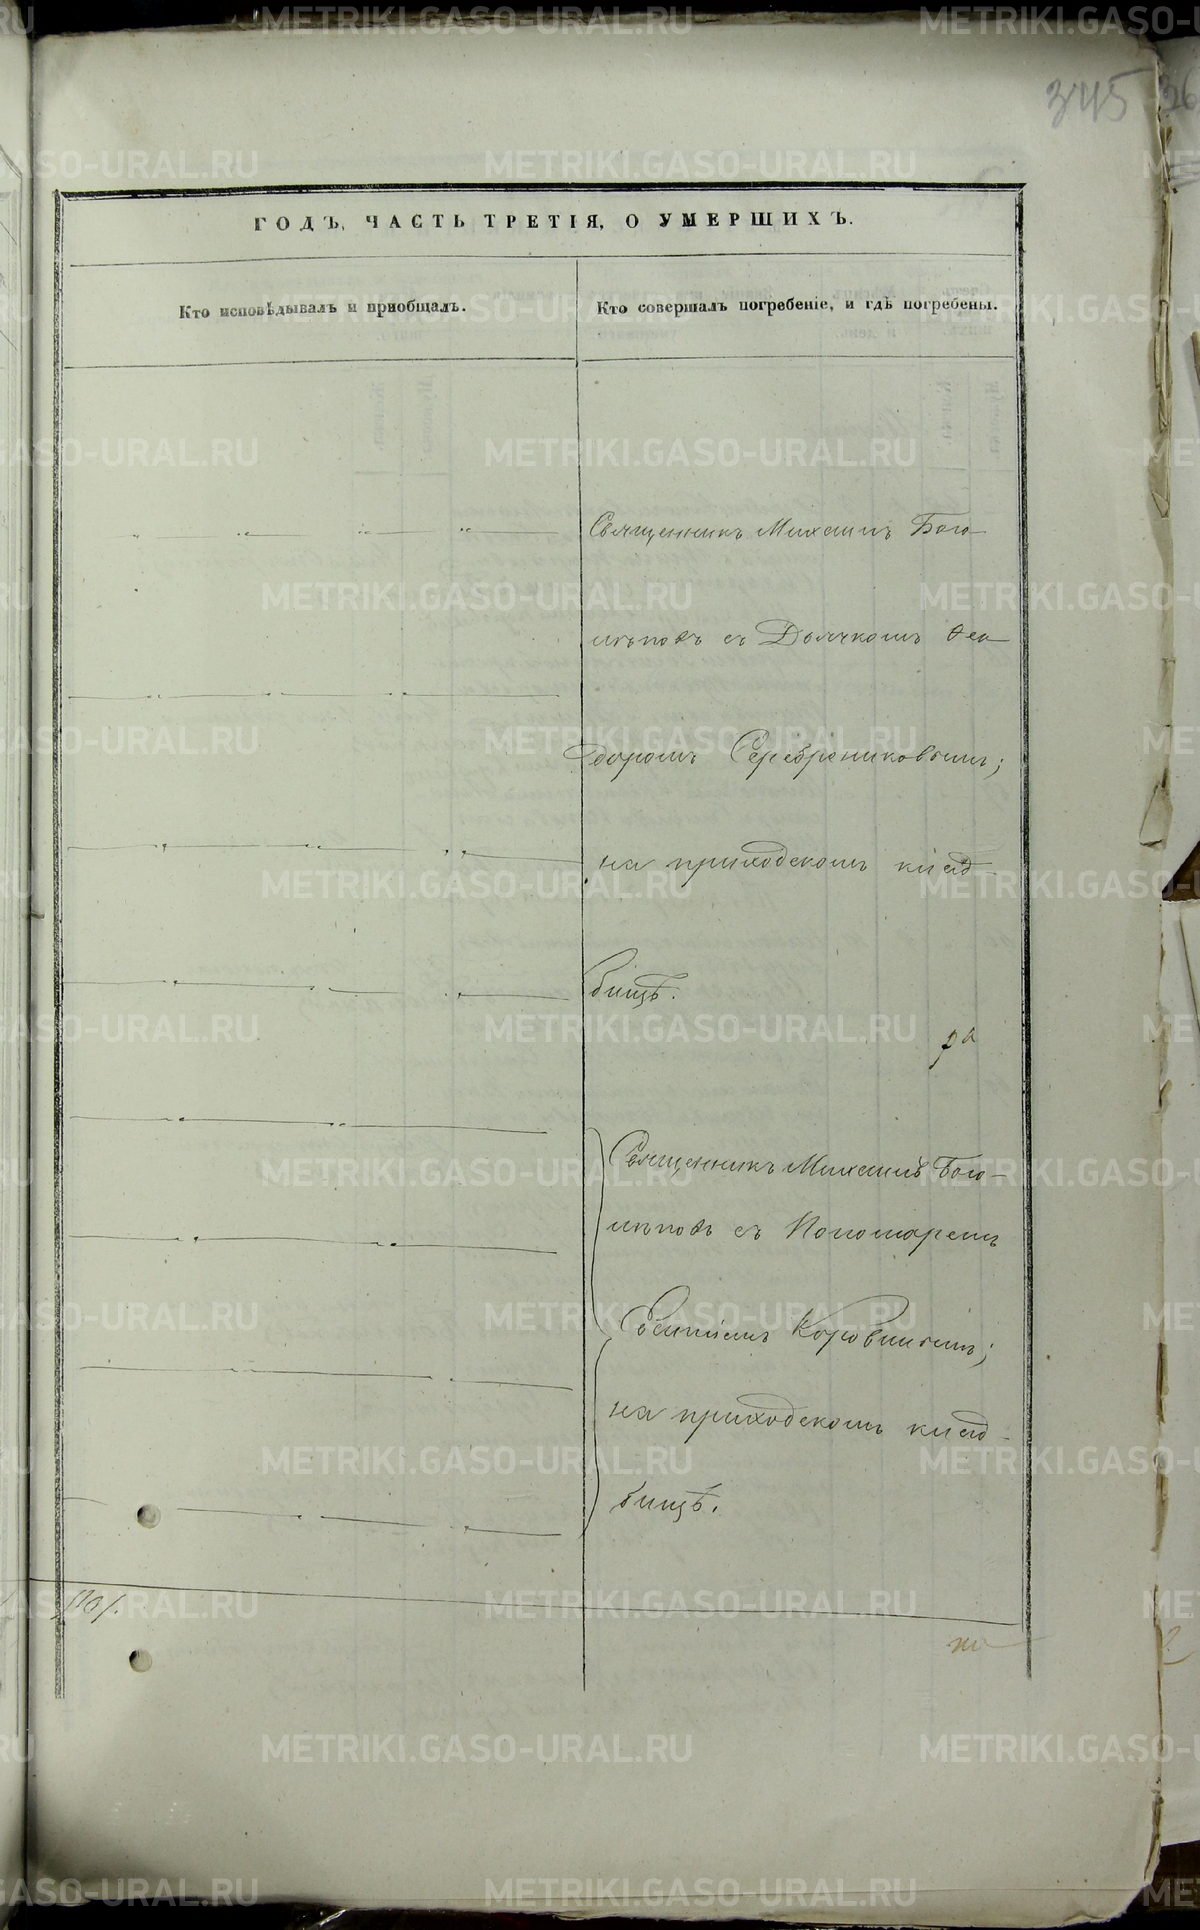 345
ГОДЪ, ЧАСТЬ ТРЕТІЯ, О УМЕРШИХЪ.
Кто исповѣдывалъ и пріобщалъ.
Кто совершалъ погребеніе, и гдѣ погребены.
Священникъ Михаилъ Бого-
лѣповъ съ Дьячкомъ Ѳео-
доромъ Серебрениковымъ;
на приходскомъ клад-
бищѣ.
Священникъ Михаилъ Бого-
лѣповъ съ Пономаремъ
Евсигніемъ Коровинымъ;
на приходскомъ клад-
бищѣ.
METRIKI.GASO-URAL.RU